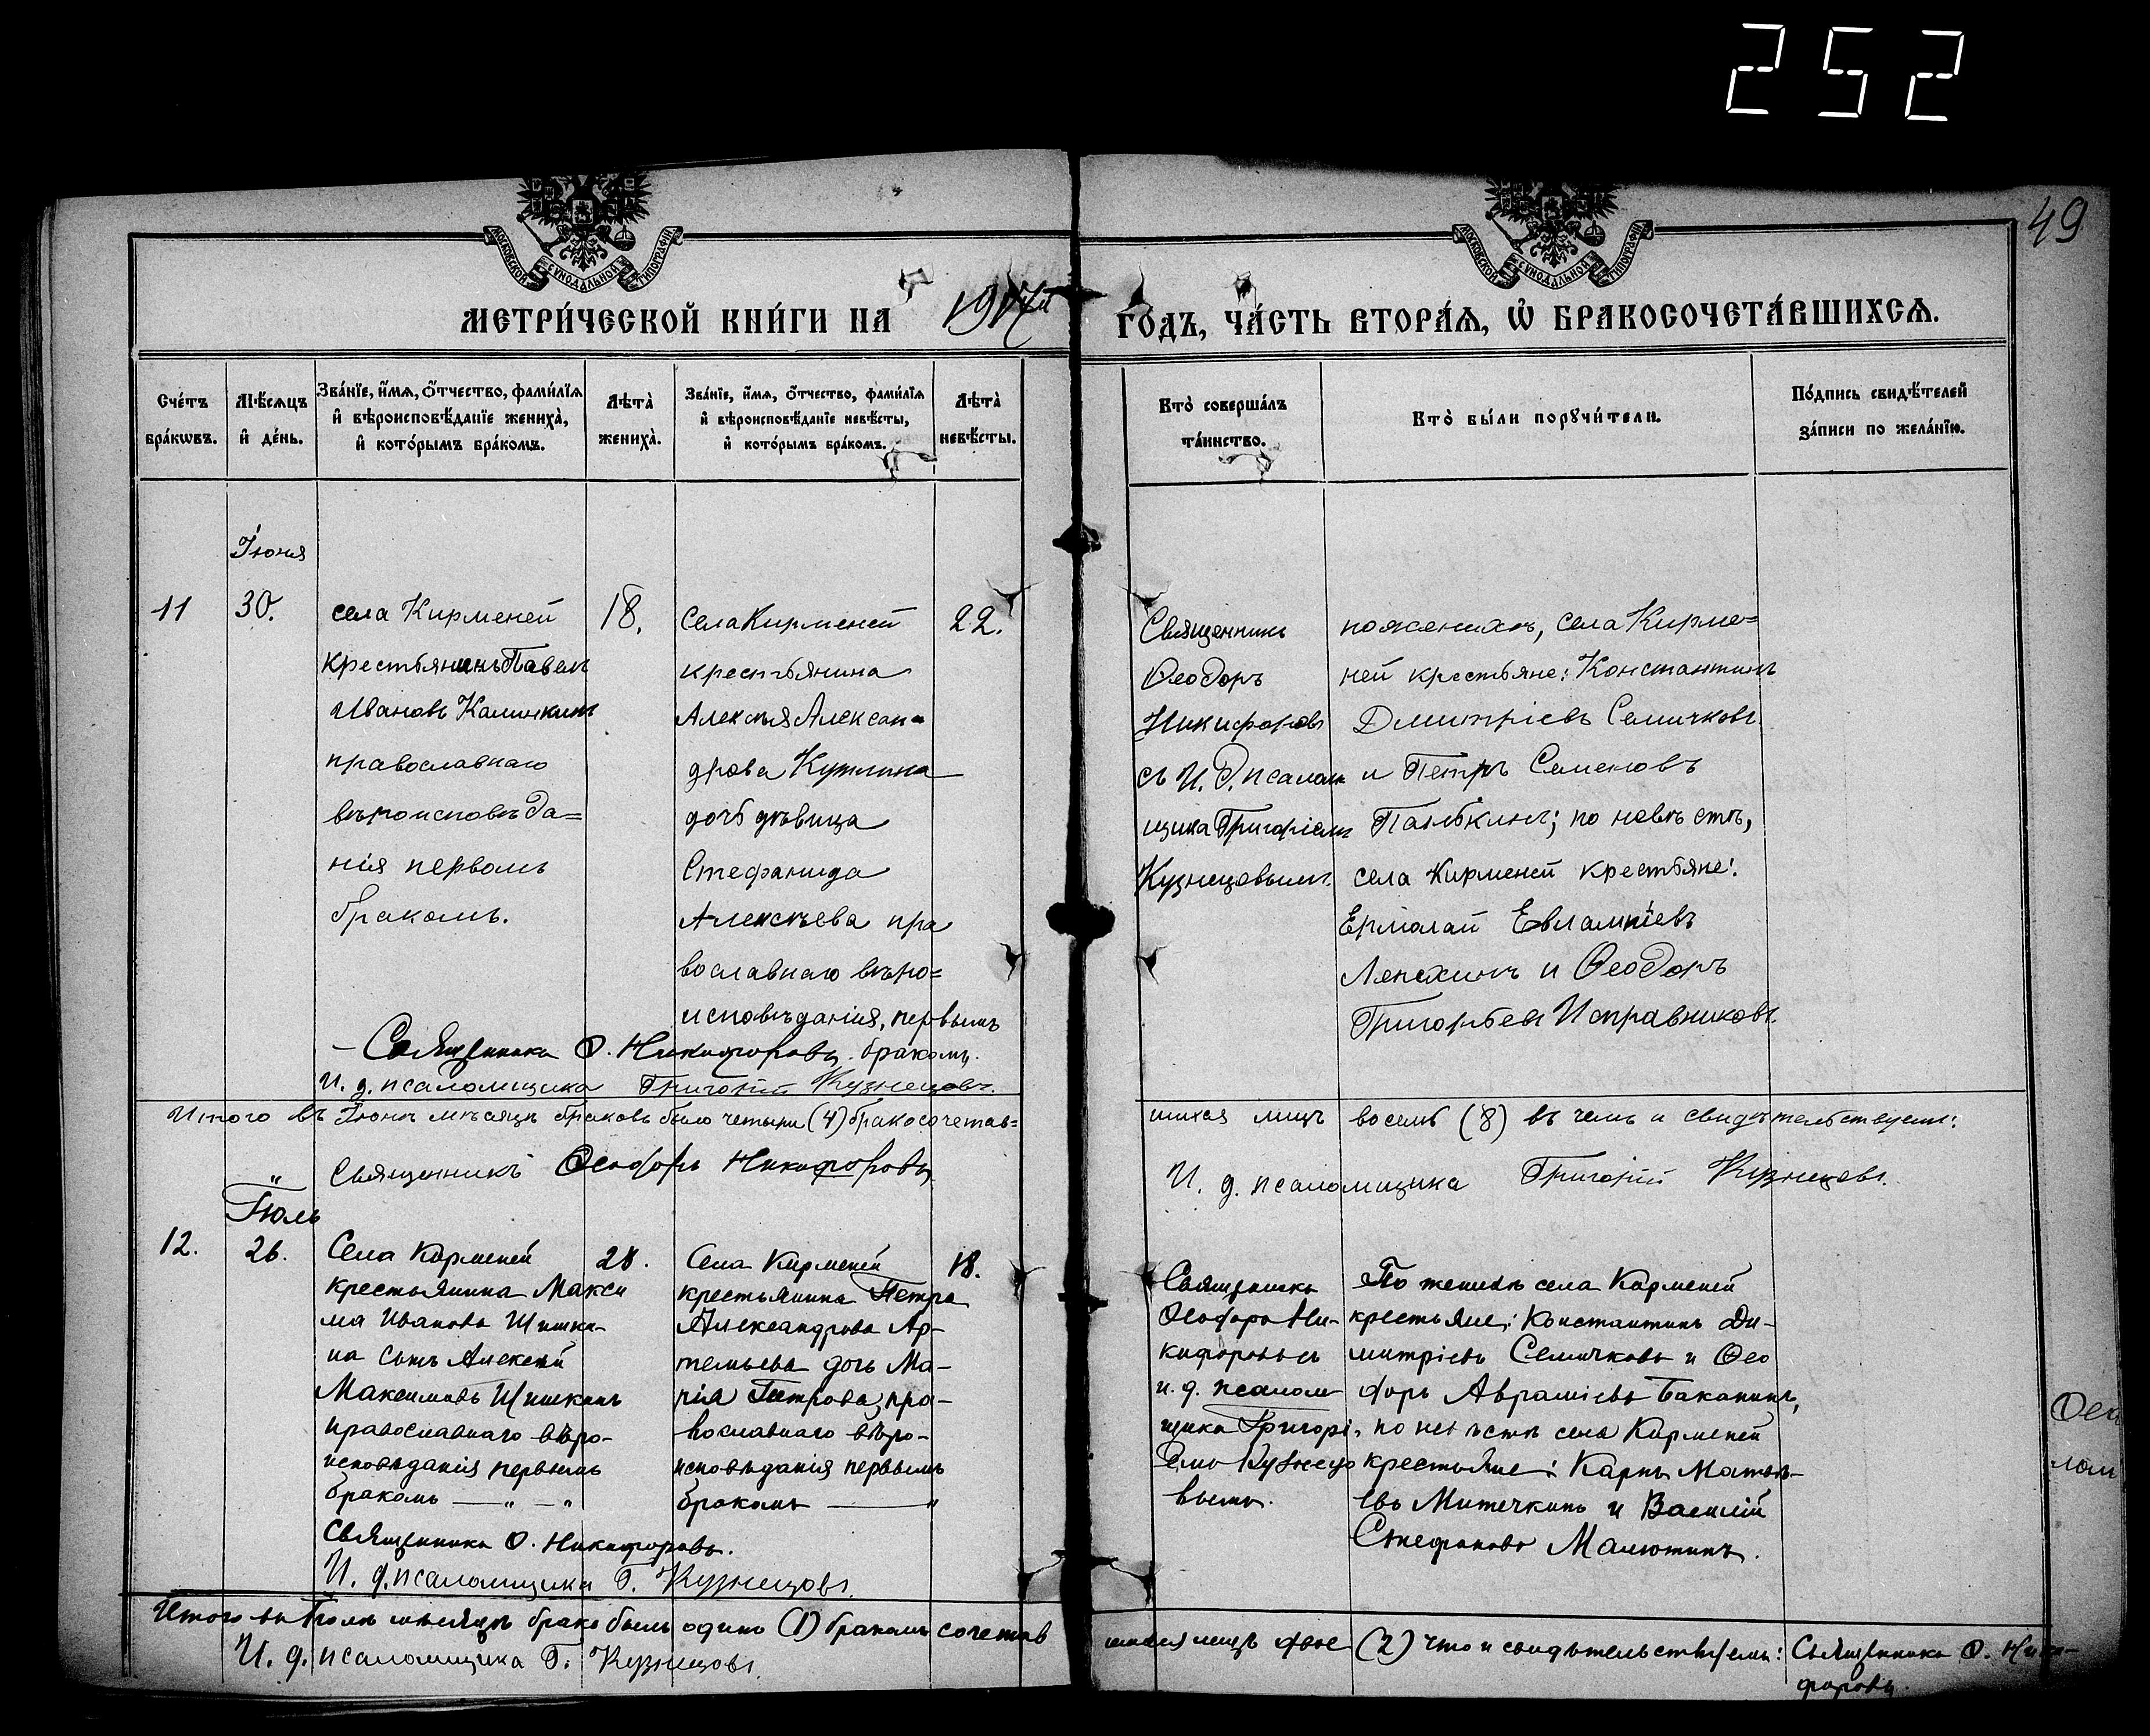 252
49
МОСКОВСКОЙ СѴНОДАЛЬНОЙ ТИПОГРАФІИ
МОСКОВСКОЙ СѴНОДАЛЬНОЙ ТИПОГРАФІИ
МЕТРИ́ЧЕСКОЙ КНИ́ГИ НА 1917й ГО́ДЪ, ЧА́СТЬ ВТОРА́Ѧ, Ѽ БРАКОСОЧЕТА́ВШИХСѦ.
Сче́тъ бра́кѡвъ.
Мѣ́сѧцъ и҆ де́нь.
Зва́нїе, и҆́мѧ, ѻ҆́тчество, фами́лїѧ и҆ вѣроисповѣ́данїе жениха̀, и҆ кото́рымъ бра́комъ.
Лѣта̀ жениха̀.
Зва́нїе, и҆́мѧ, ѻ҆́тчество, фами́лїѧ и҆ вѣроисповѣ́данїе невѣ́сты, и҆ кото́рымъ бра́комъ.
Лѣта̀ невѣ́сты.
Кто̀ соверша́лъ та́инство.
Кто̀ бы́ли порꙋчи́тели.
По́дпись свидѣ́телей за́писи по жела́нїю.
Іюня
11
30.
села Кирменей
крестьянинъ Павелъ
Ивановъ Калинкинъ
православнаго
вѣроисповѣда=
нія первомъ
бракомъ.
18.
Села Кирменей
крестьянина
Алексѣя Алексан-
дрова Кузмина
дочь дѣвица
Стефанида
Алексѣева пра
вославнаго вѣро=
исповѣданія, первымъ
бракомъ.
22.
Священникъ
Ѳеодоръ
Никифоровъ
съ И. Д. псалом
щика Григоріемъ
Кузнецовымъ.
по женихѣ, села Кирме=
ней крестьяне: Константинъ
Дмитріевъ Семичковъ
и Петръ Семеновъ
Палькинъ; по невѣстѣ,
села Кирменей крестьяне:
Ермолай Евлампіевъ
Лепехинъ и Ѳеодоръ
Григорьевъ Исправниковъ.
Священникъ Ѳ. Никифоровъ.
И. д. псаломщика Григорій Кузнецовъ.
Итого въ Іюнѣ мѣсяцѣ браковъ было четыре (4) бракосочетав=
шихся лицъ восемь (8) въ чемъ и свидѣтельствуемъ:
Священникъ Ѳеодоръ Никифоровъ
И. д. псаломщика Григорій Кузнецовъ.
Іюль
12.
26.
Села Кирменей
крестьянина Макси
ма Иванова Шишки-
на сынъ Алексѣй
Максимовъ Шишкинъ
православнаго вѣро-
исповѣданія первымъ
бракомъ — „ — „
28.
Села Кирменей
крестьянина Петра
Александрова Ар-
темьева дочь Ма-
рія Петрова, пра-
вославнаго вѣро-
исповѣданія первымъ
бракомъ — „
18.
Священникъ
Ѳеодоръ Ни-
кифоровъ съ
и. д. псалом-
щика Григорі-
емъ Кузнецо
вымъ.
По женихѣ села Кирменей
крестьяне: Константинъ Ди-
митріевъ Семичковъ и Ѳео
доръ Авраміевъ Баканинъ,
по невѣстѣ села Кирменей
крестьяне: Карпъ Матвѣ-
евъ Митечкинъ и Василій
Стефановъ Малютинъ.
Священникъ Ѳ. Никифоровъ.
И. д. псаломщика Г. Кузнецовъ.
Итого въ Іюлѣ мѣсяцѣ бракъ былъ одинъ (1) бракомъ сочетав
шихся лицъ двое (2) что и свидѣтельствуемъ: Священникъ Ѳ. Ники-
форовъ.
И. д. псаломщика Г. Кузнецовъ.